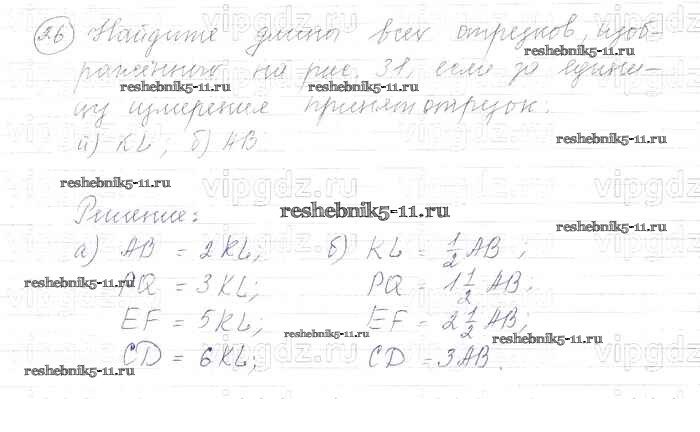 26 Найдите длины всех отрезков, изоб-
ражённого на рис. 31, если за едини-
цу измерения принят отрезок:
а) KL; б) AB
Решение:
а) AB = 2KL; б) KL = 1/2 AB;
PQ = 3KL; PQ = 1 1/2 AB;
EF = 5KL; EF = 2 1/2 AB;
CD = 6KL; CD = 3AB.
vipgdz.ru
reshebnik5-11.ru